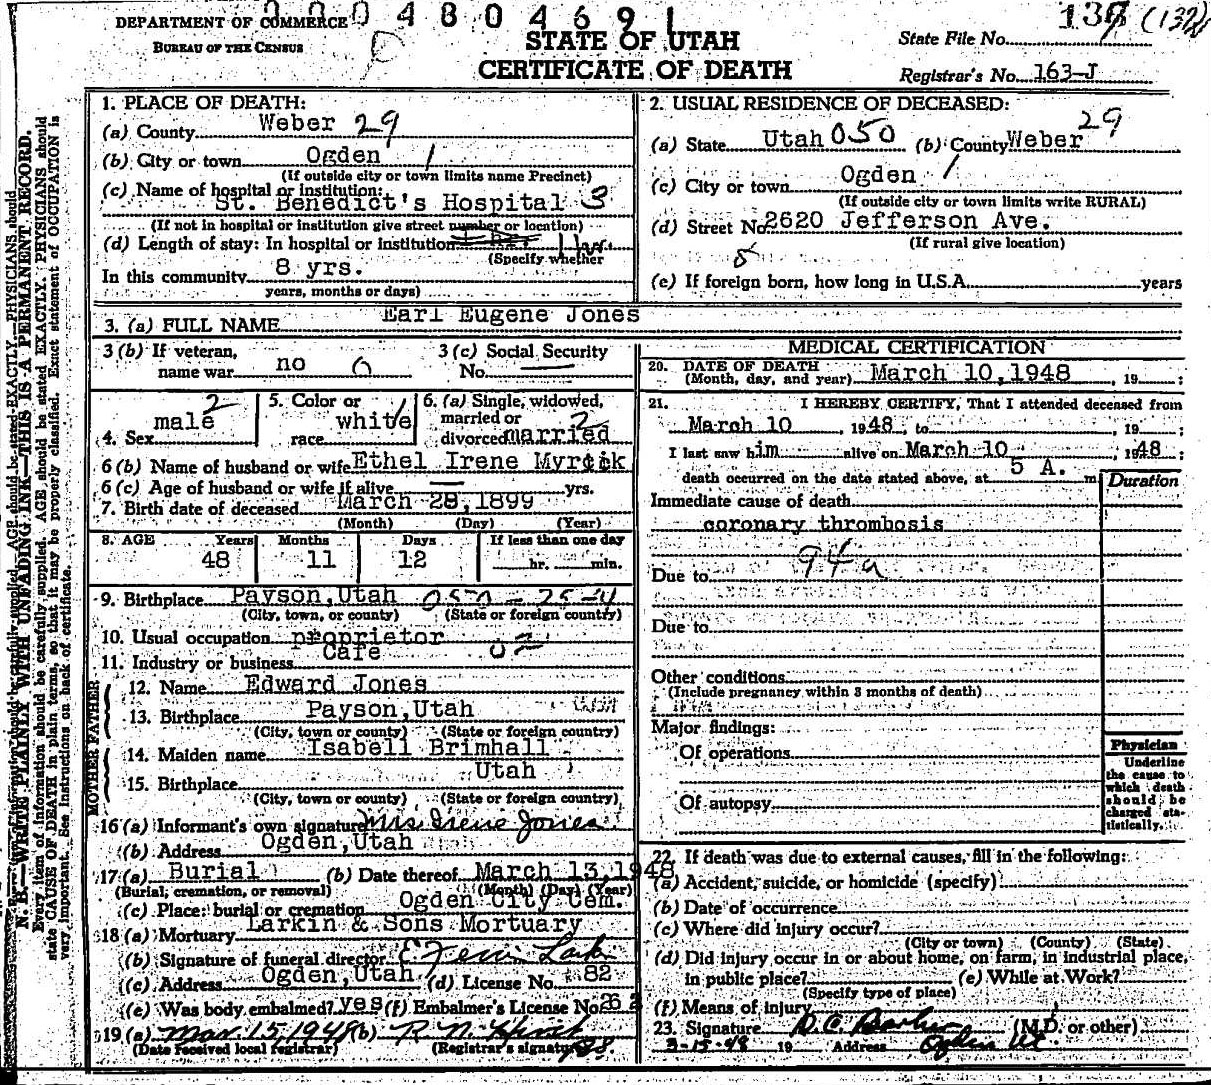 DEPARTMENT OF COMMERCE
BUREAU OF THE CENSUS
04804691
STATE OF UTAH
CERTIFICATE OF DEATH
State File No. 137 (132)
Registrar's No. 163-J
N. B.—WRITE PLAINLY WITH UNFADING INK—THIS IS A PERMANENT RECORD.
Every item of information should be carefully supplied. AGE should be stated EXACTLY. PHYSICIANS should
state CAUSE OF DEATH in plain terms, so that it may be properly classified. Exact statement of OCCUPATION is
very important. See instructions on back of certificate.
1. PLACE OF DEATH:
(a) County Weber 29
(b) City or town Ogden 1
(If outside city or town limits name Precinct)
(c) Name of hospital or institution:
St. Benedict's Hospital 3
(If not in hospital or institution give street number or location)
(d) Length of stay: In hospital or institution 1 hr.
(Specify whether
In this community 8 yrs.
years, months or days)
2. USUAL RESIDENCE OF DECEASED:
(a) State Utah 050 (b) County Weber 29
(c) City or town Ogden 1
(If outside city or town limits write RURAL)
(d) Street No. 2620 Jefferson Ave.
(If rural give location)
8
(e) If foreign born, how long in U.S.A. years
3. (a) FULL NAME Earl Eugene Jones
3 (b) If veteran,
name war no 0
3 (c) Social Security
No. —
4. Sex male 2
5. Color or
race white 1
6. (a) Single, widowed,
married or
divorced married 2
6 (b) Name of husband or wife Ethel Irene Myrick
6 (c) Age of husband or wife if alive — yrs.
7. Birth date of deceased March 28, 1899
(Month) (Day) (Year)
8. AGE Years Months Days If less than one day
48 11 12 hr. min.
9. Birthplace Payson, Utah 050-25-4
(City, town, or county) (State or foreign country)
10. Usual occupation proprietor
11. Industry or business Cafe
FATHER
12. Name Edward Jones
13. Birthplace Payson, Utah
(City, town or county) (State or foreign country)
MOTHER
14. Maiden name Isabell Brimhall
15. Birthplace Utah
(City, town or county) (State or foreign country)
16 (a) Informant's own signature Mrs Irene Jones
(b) Address Ogden, Utah
17 (a) Burial (b) Date thereof March 13, 1948
(Burial, cremation, or removal) (Month) (Day) (Year)
(c) Place: burial or cremation Ogden City Cem.
18 (a) Mortuary Larkin & Sons Mortuary
(b) Signature of funeral director
(c) Address Ogden, Utah (d) License No. 82
(e) Was body embalmed? yes (f) Embalmer's License No. 262
19 (a) Mar. 15, 1948 (b) R. N. Hirst
(Date received local registrar) (Registrar's signature)
MEDICAL CERTIFICATION
20. DATE OF DEATH
(Month, day, and year) March 10, 1948, 19 ;
21. I HEREBY CERTIFY, That I attended deceased from
March 10, 1948, to , 19 ;
I last saw him alive on March 10, 1948;
death occurred on the date stated above, at 5 A. m
Duration
Immediate cause of death
coronary thrombosis
94a
Due to
Due to
Other conditions
(Include pregnancy within 3 months of death)
Major findings:
Of operations
Of autopsy
Physician
Underline
the cause to
which death
should be
charged sta-
tistically.
22. If death was due to external causes, fill in the following:
(a) Accident, suicide, or homicide (specify)
(b) Date of occurrence
(c) Where did injury occur?
(City or town) (County) (State)
(d) Did injury occur in or about home, on farm, in industrial place,
in public place? (e) While at Work?
(Specify type of place)
(f) Means of injury
23. Signature (M.D. or other)
3-15-48 19 Address Ogden Ut